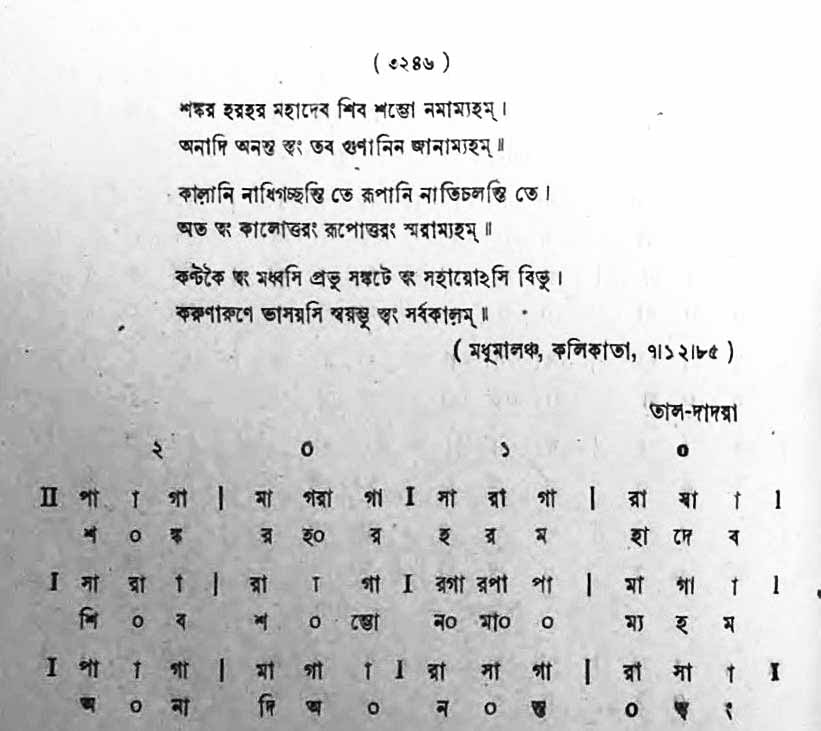 ( ৩২৪৬ )
শঙ্কর হরহর মহাদেব শিব শম্ভো নমাম্যহম্ ।
অনাদি অনন্ত ত্বং তব গুণানিন জানাম্যহম্ ॥
কালানি নাধিগচ্ছন্তি তে রূপানি নাতিচলন্তি তে ।
অত ত্বং কালোত্তরং রূপোত্তরং স্মরাম্যহম্ ॥
কণ্টকৈ ত্বং মধ্বসি প্রভু সঙ্কটে ত্বং সহায়োঽসি বিভু ।
করুণারুণে ভাসয়সি স্বয়ম্ভূ ত্বং সর্বকালম্ ॥
( মধুমালঞ্চ, কলিকাতা, ৭।১২।৮৫ )
তাল-দাদরা
২ 0 ১ 0
II পা া গা | মা গরা গা I সা রা গা | রা সা া I
শ 0 ঙ্ক র হ0 র হ র ম হা দে ব
I সা রা া | রা া গা I রগা রপা পা | মা গা া I
শি 0 ব শ 0 ম্ভো ন0 মা0 0 ম্য হ ম
I পা া গা | মা গা া I রা সা গা | রা সা া I
অ 0 না দি অ 0 ন 0 ন্ত 0 ত্ব ং